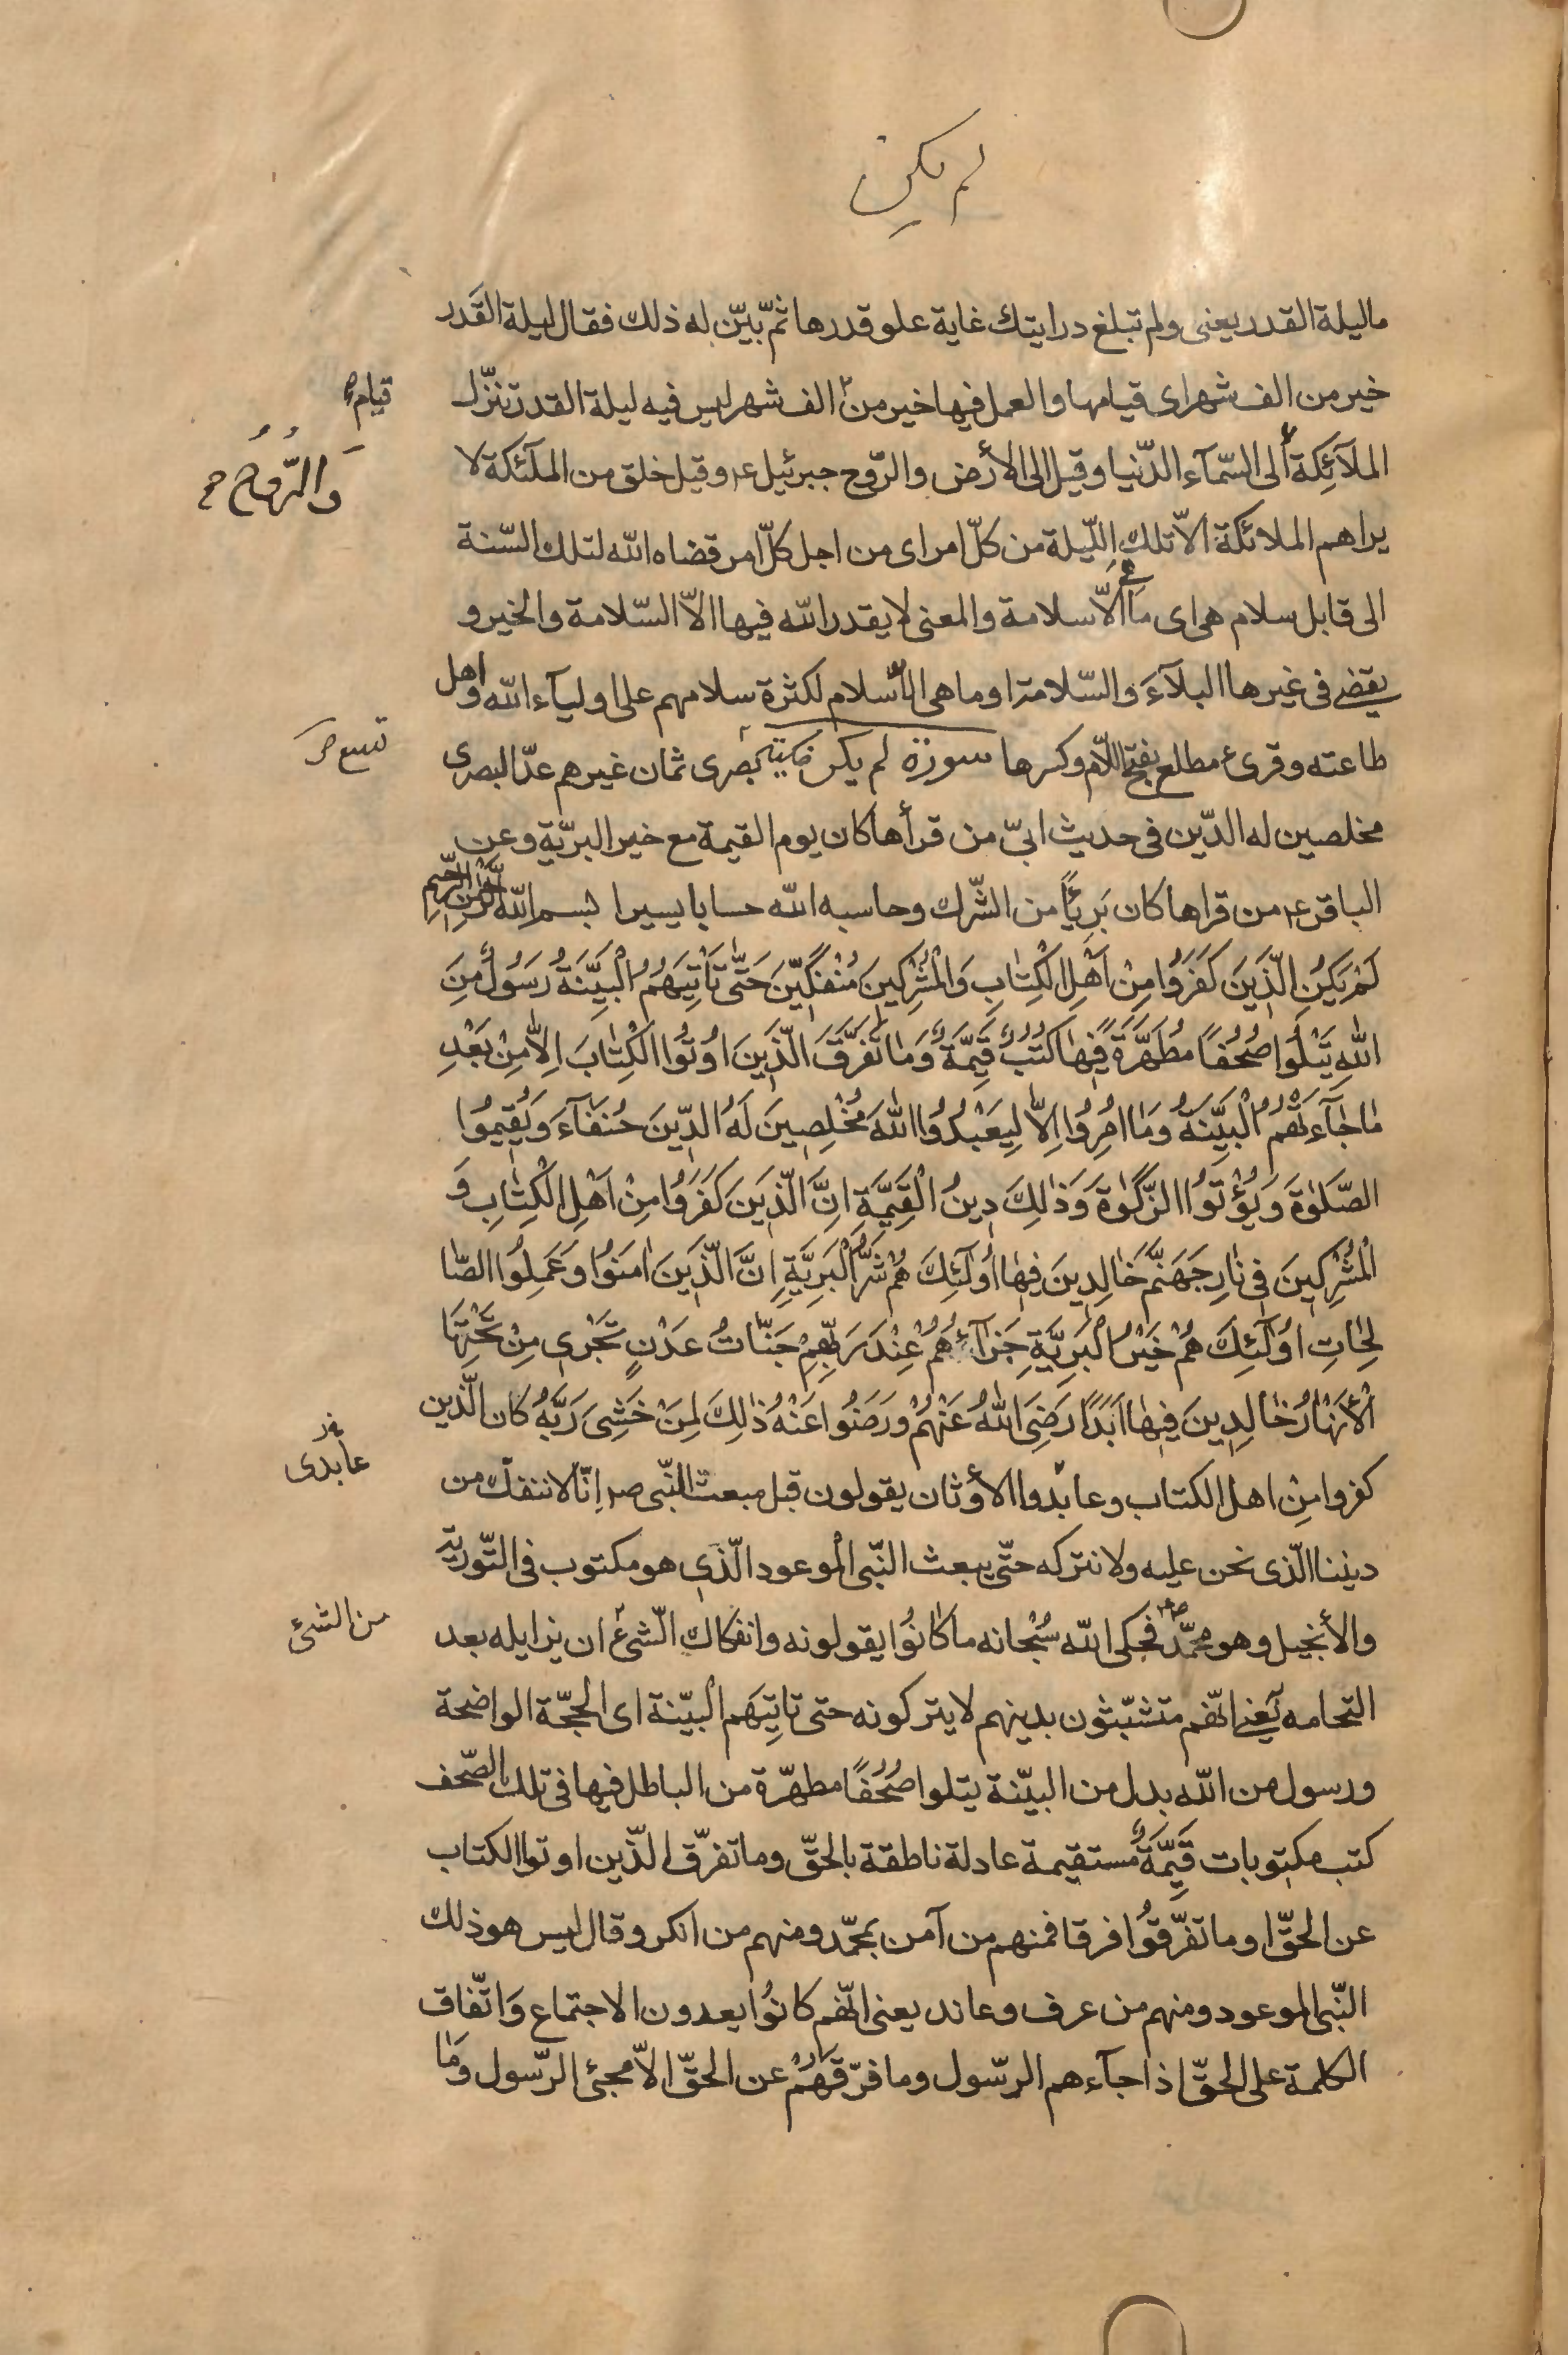 لم يكن
ما ليلة القدر يعنى ولم تبلغ درايتك غاية علو قدرها ثمّ بيّن له ذلك فقال ليلة القَدر
خير من الف شهر اى قيامها والعمل فيها خير من الف شهر ليس فيه ليلة القدر تنزّل
قيام
الملآئِكة الى السّمآء الدّنيا وقيل الى الأرض والرّوح جبرئيل ع وقيل خلق من الملئكة لا
وَالرُّوحُ
يراهم الملائكة الاّ تلك اللّيلة من كلّ امر اى من اجل كلّ امر قضاه الله لتلك السّنة
الى قابل سلام هى اى ما هى الاّ سلامة والمعنى لا يقدر الله فيها الاّ السّلامة والخير و
يقضى فى غيرها البلآءَ والسّلامة او ما هى الاّ سلام لكثرة سلامهم على اوليآء الله واهل
طاعته وقرئ مطلع بفتح اللاّم وكسرها سورة لم يكن بصرى ثمان غيرهم عدّ البصرى
تسع
مخلصين له الدّين فى حديث ابىّ من قرأها كان يوم القيمة مع خير البريّة وعن
الباقر ع من قراها كان بَرِيًا من الشّرك وحاسبه الله حسابا يسيرا بسم الله الرّحمن الرّحيم
لَمْ يَكُنِ الَّذِينَ كَفَرُوا مِنْ اَهْلِ الْكِتٰابِ وَالْمُشْرِكِينَ مُنْفَكِّينَ حَتّٰى تَأْتِيَهُمُ الْبَيِّنَةُ رَسُولٌ مِنَ
اللهِ يَتْلُوا صُحُفًا مُطَهَّرَةً فِيهٰا كُتُبٌ قَيِّمَةٌ وَمٰا تَفَرَّقَ الَّذِينَ اُوتُوا الْكِتٰابَ اِلاّٰ مِنْ بَعْدِ
مٰا جٰآءَتْهُمُ الْبَيِّنَةُ وَمٰا اُمِرُوا اِلاّٰ لِيَعْبُدُوا اللهَ مُخْلِصِينَ لَهُ الدِّينَ حُنَفٰآءَ وَيُقِيمُوا
الصَّلٰوةَ وَيُؤْتُوا الزَّكٰوةَ وَذٰلِكَ دِينُ الْقَيِّمَةِ اِنَّ الَّذِينَ كَفَرُوا مِنْ اَهْلِ الْكِتٰابِ وَ
الْمُشْرِكِينَ فِى نٰارِ جَهَنَّمَ خٰالِدِينَ فِيهٰا اُولٰئِكَ هُمْ شَرُّ الْبَرِيَّةِ اِنَّ الَّذِينَ اٰمَنُوا وَعَمِلُوا الصّٰا
لِحٰاتِ اُولٰئِكَ هُمْ خَيْرُ الْبَرِيَّةِ جَزٰآؤُهُمْ عِنْدَ رَبِّهِمْ جَنّٰاتُ عَدْنٍ تَجْرِى مِنْ تَحْتِهَا
الْأَنْهٰارُ خٰالِدِينَ فِيهٰا اَبَدًا رَضِىَ اللهُ عَنْهُمْ وَرَضُوا عَنْهُ ذٰلِكَ لِمَنْ خَشِىَ رَبَّهُ كان الّذين
كفروا مِنْ اهل الكتاب وعابدوا الأوثان يقولون قبل مبعث النّبى ص اِنّا لا ننفكّ من
عابدى
ديننا الّذى نحن عليه ولا نتركه حتّى يبعث النّبى الموعود الّذى هو مكتوب فى التّورية
والأنجيل وهو محمّد ص فحكى الله سُبْحانه ما كانُوا يقولونه وانفكاك الشّئ ان يزايله بعد
من الشئ
التحامه يَعْنى انّهم متشبّثون بدينهم لا يتركونه حتى تاتيَهم البيّنة اى الحجّة الواضحة
ورسول من الله بدل من البيّنة يتلوا صُحُفًا مطهّرة من الباطل فيها فى تلك الصّحف
كتب مكتوبات قَيِّمَةٌ مستقيمة عادلة ناطقة بالحقّ وما تفرّق الّذين اوتوا الكتاب
عن الحقّ او ما تفرّقوُا فرقا فمنهم من آمن بمحمّد ومنهم من انكر وقال ليس هو ذلك
النّبى الموعود ومنهم من عرف وعاند يعنى انّهم كانُوا يعدون الاجتماع وَاتّفاق
الكلمة على الحقّ اذا جآءهم الرّسول وما فرّقهُمْ عن الحقّ الاّ مجئ الرّسول وَمٰا